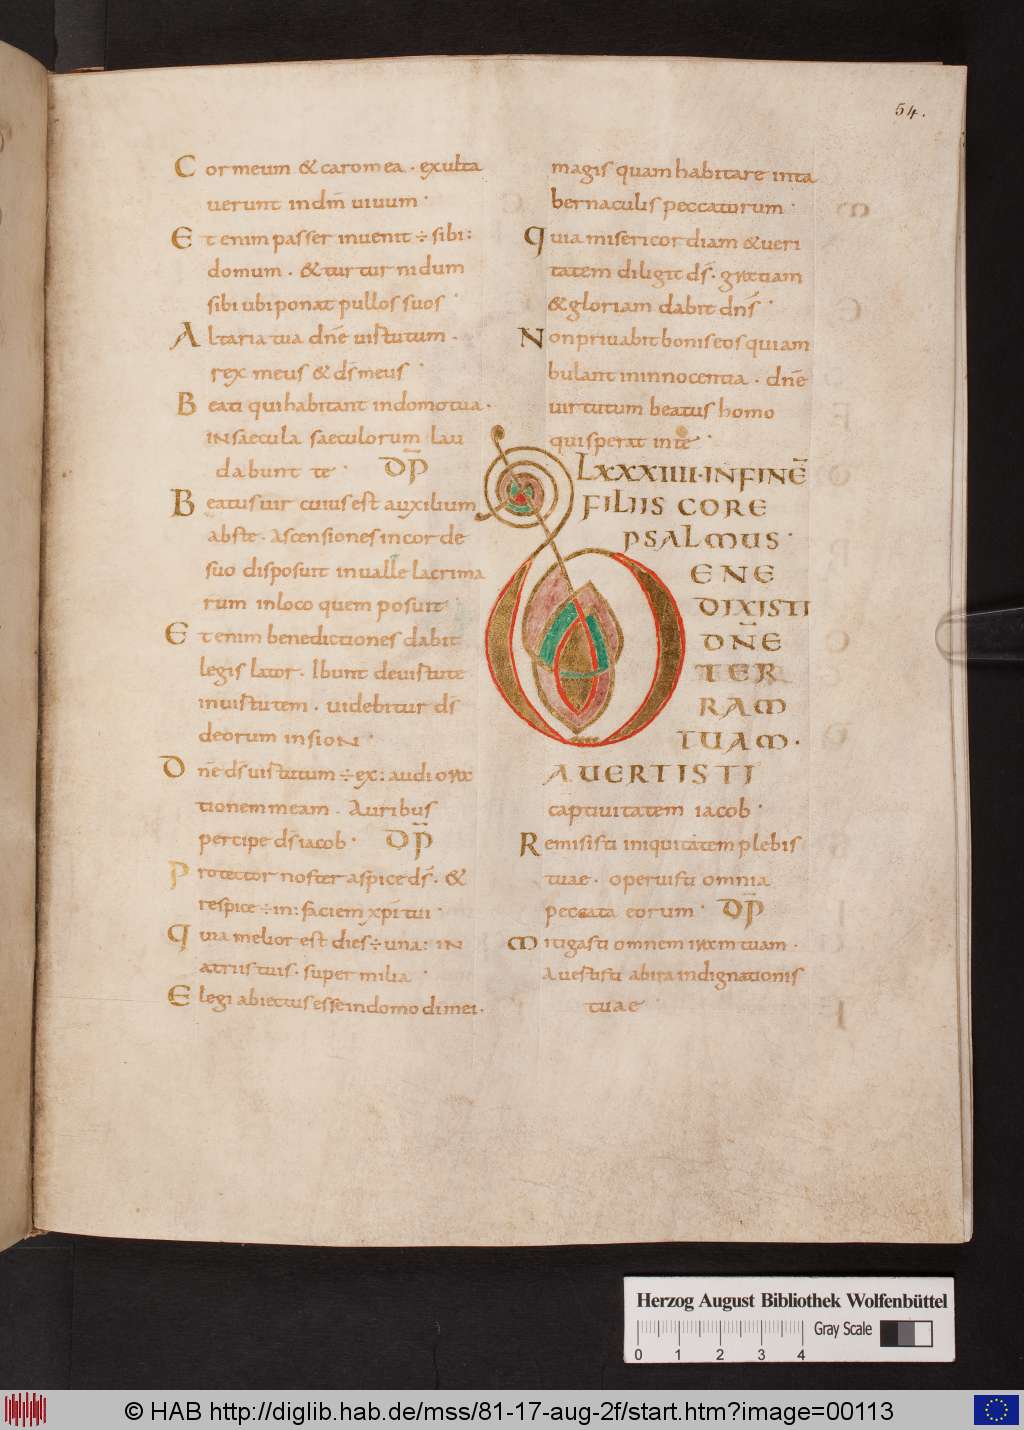 54.
Cor meum & caro mea · exulta
uerunt in dm̄ uiuum ·
Et enim passer inuenit ÷ sibi:
domum · & turtur nidum
sibi ubi ponat pullos suos ·
Altaria tua dnē uirtutum ·
rex meus & ds̄ meus ·
Beati qui habitant in domo tua ·
IN saecula saeculorum lau
dabunt te · DP̄
Beatus uir cuius est auxilium
abs te · Ascensiones in corde
suo disposuit in ualle lacrima
rum in loco quem posuit ·
Et enim benedictiones dabit
legis lator · Ibunt de uirtute
in uirtutem · uidebitur ds̄
deorum in sion ·
Dnē ds̄ uirtutum ÷ ex: audi ora
tionem meam · Auribus
percipe ds̄ iacob · DP̄
Protector noster aspice ds̄ · &
respice ÷ in: faciem xp̄i tui ·
Quia melior est dies ÷ una: IN
atriis tuis · super milia ·
Elegi abiectus esse in domo di mei ·
magis quam habitare in ta
bernaculis peccatorum ·
Quia misericordiam & ueri
tatem diligit ds̄ · gratiam
& gloriam dabit dns̄ ·
Non priuabit bonis eos qui am
bulant in innocentia · dnē
uirtutum beatus homo
qui sperat in te ·
LXXXIIII · IN FINĒ
FILIIS CORE
PSALMUS ·
BENE
DIXISTI
DNĒ
TER
RAM
TUAM ·
AUERTISTI
captiuitatem iacob ·
Remisisti iniquitatem plebis
tuae · operuisti omnia
peccata eorum · DP̄
Mitigasti omnem iram tuam ·
Auertisti ab ira indignationis
tuae ·
Herzog August Bibliothek Wolfenbüttel
Gray Scale
0 1 2 3 4
© HAB http://diglib.hab.de/mss/81-17-aug-2f/start.htm?image=00113